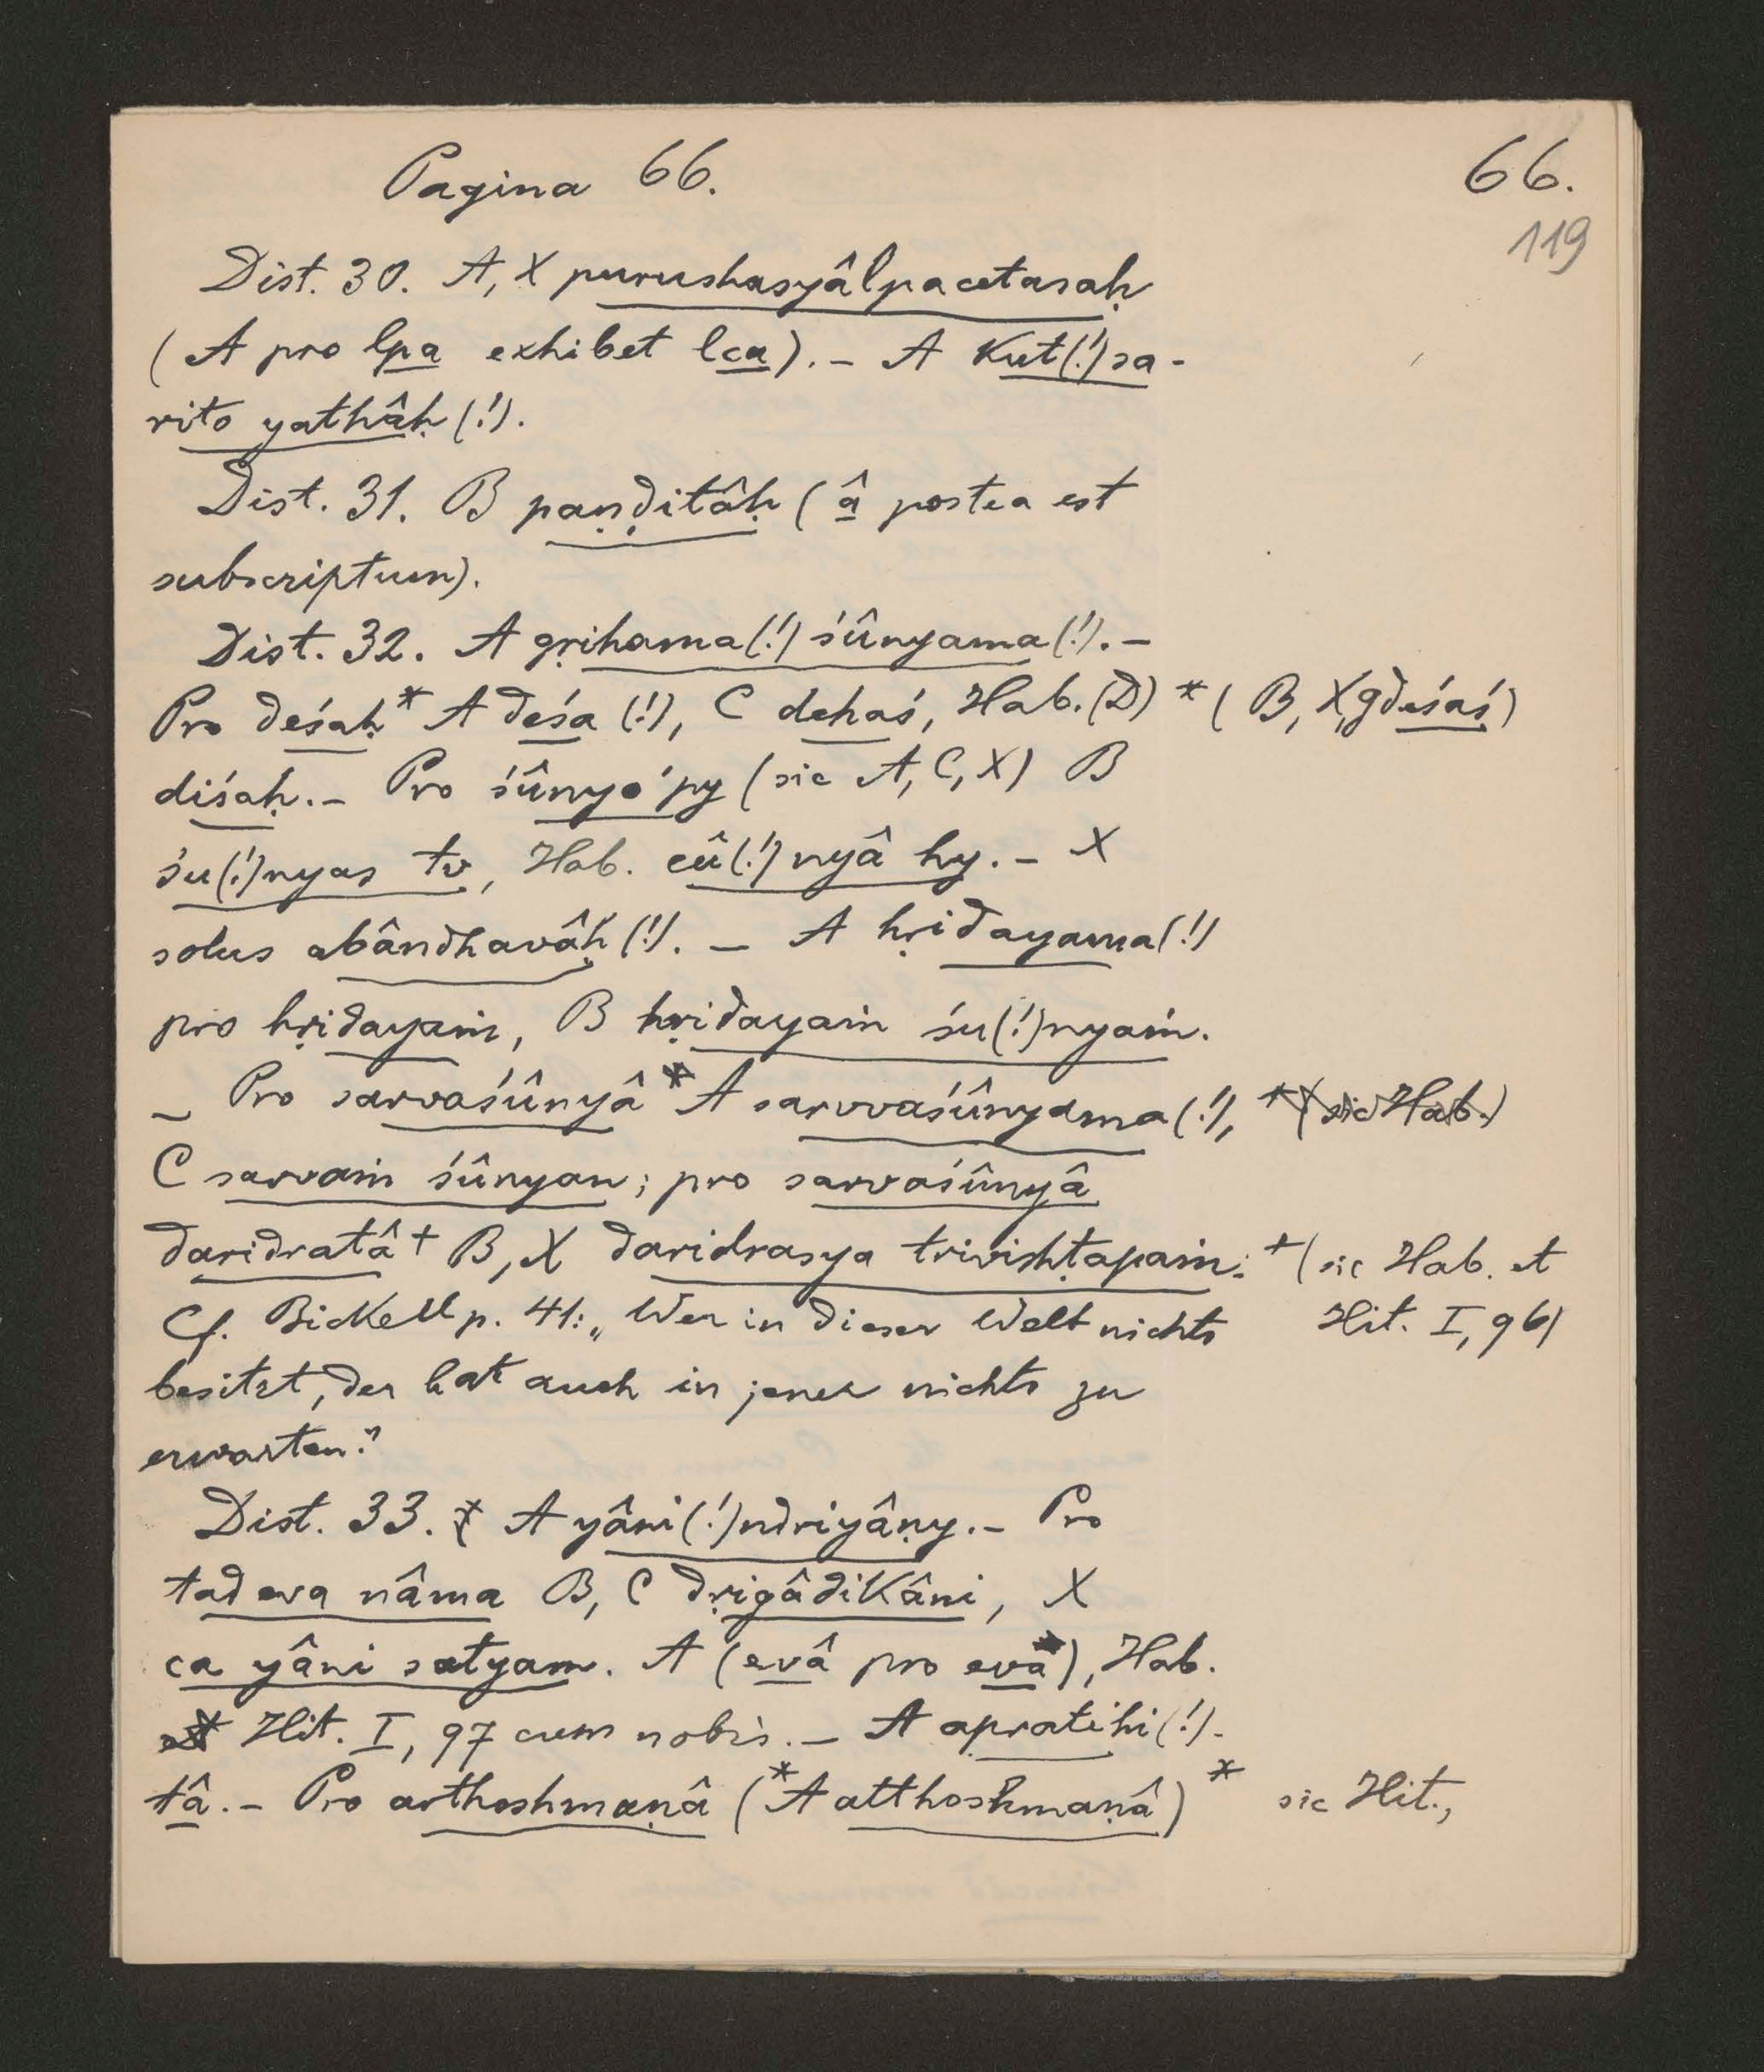 Pagina 66.
66.
119
Dist. 30. A, X purushasyâlpacetasaḥ
(A pro lpa exhibet lca). – A kut(!)sa-
rito yathâḥ (!).
Dist. 31. B paṇḍitâḥ (â postea est
subscriptum).
Dist. 32. A gṛihama(!) śûnyama(!). –
Pro deśaḥ* A deśa (!), C dehaś, Hab. (D) *( B, X, g deśaś)
diśaḥ. – Pro śûnyo 'py (sic A, C, X) B
śu(!)nyas tv, Hab. cû(!)nyâ hy. – X
solus abândhavâḥ (!). – A hṛidayama(!)
pro hṛidayaṁ, B hṛidayaṁ śu(!)nyaṁ.
– Pro sarvaśûnyâ * A sarvvaśûnyama(!), *(sic Hab.)
C sarvaṁ śûnyan; pro sarvaśûnyâ
daridratâ + B, X daridrasya trivishṭapaṁ. +(sic Hab. et
Hit. I, 96)
Cf. Bickell p. 41: „Wer in dieser Welt nichts
besitzt, der hat auch in jener nichts zu
erwarten."
Dist. 33. A yâni(!)ndriyâṇy. – Pro
tad eva nâma B, C dṛigâdikâni, X
ca yâni satyam. A (evâ pro eva), Hab.
et Hit. I, 97 cum nobis. – A apratihi(!)-
tâ. – Pro arthoshmaṇâ (*A atthoshmaṇâ) * sic Hit.,